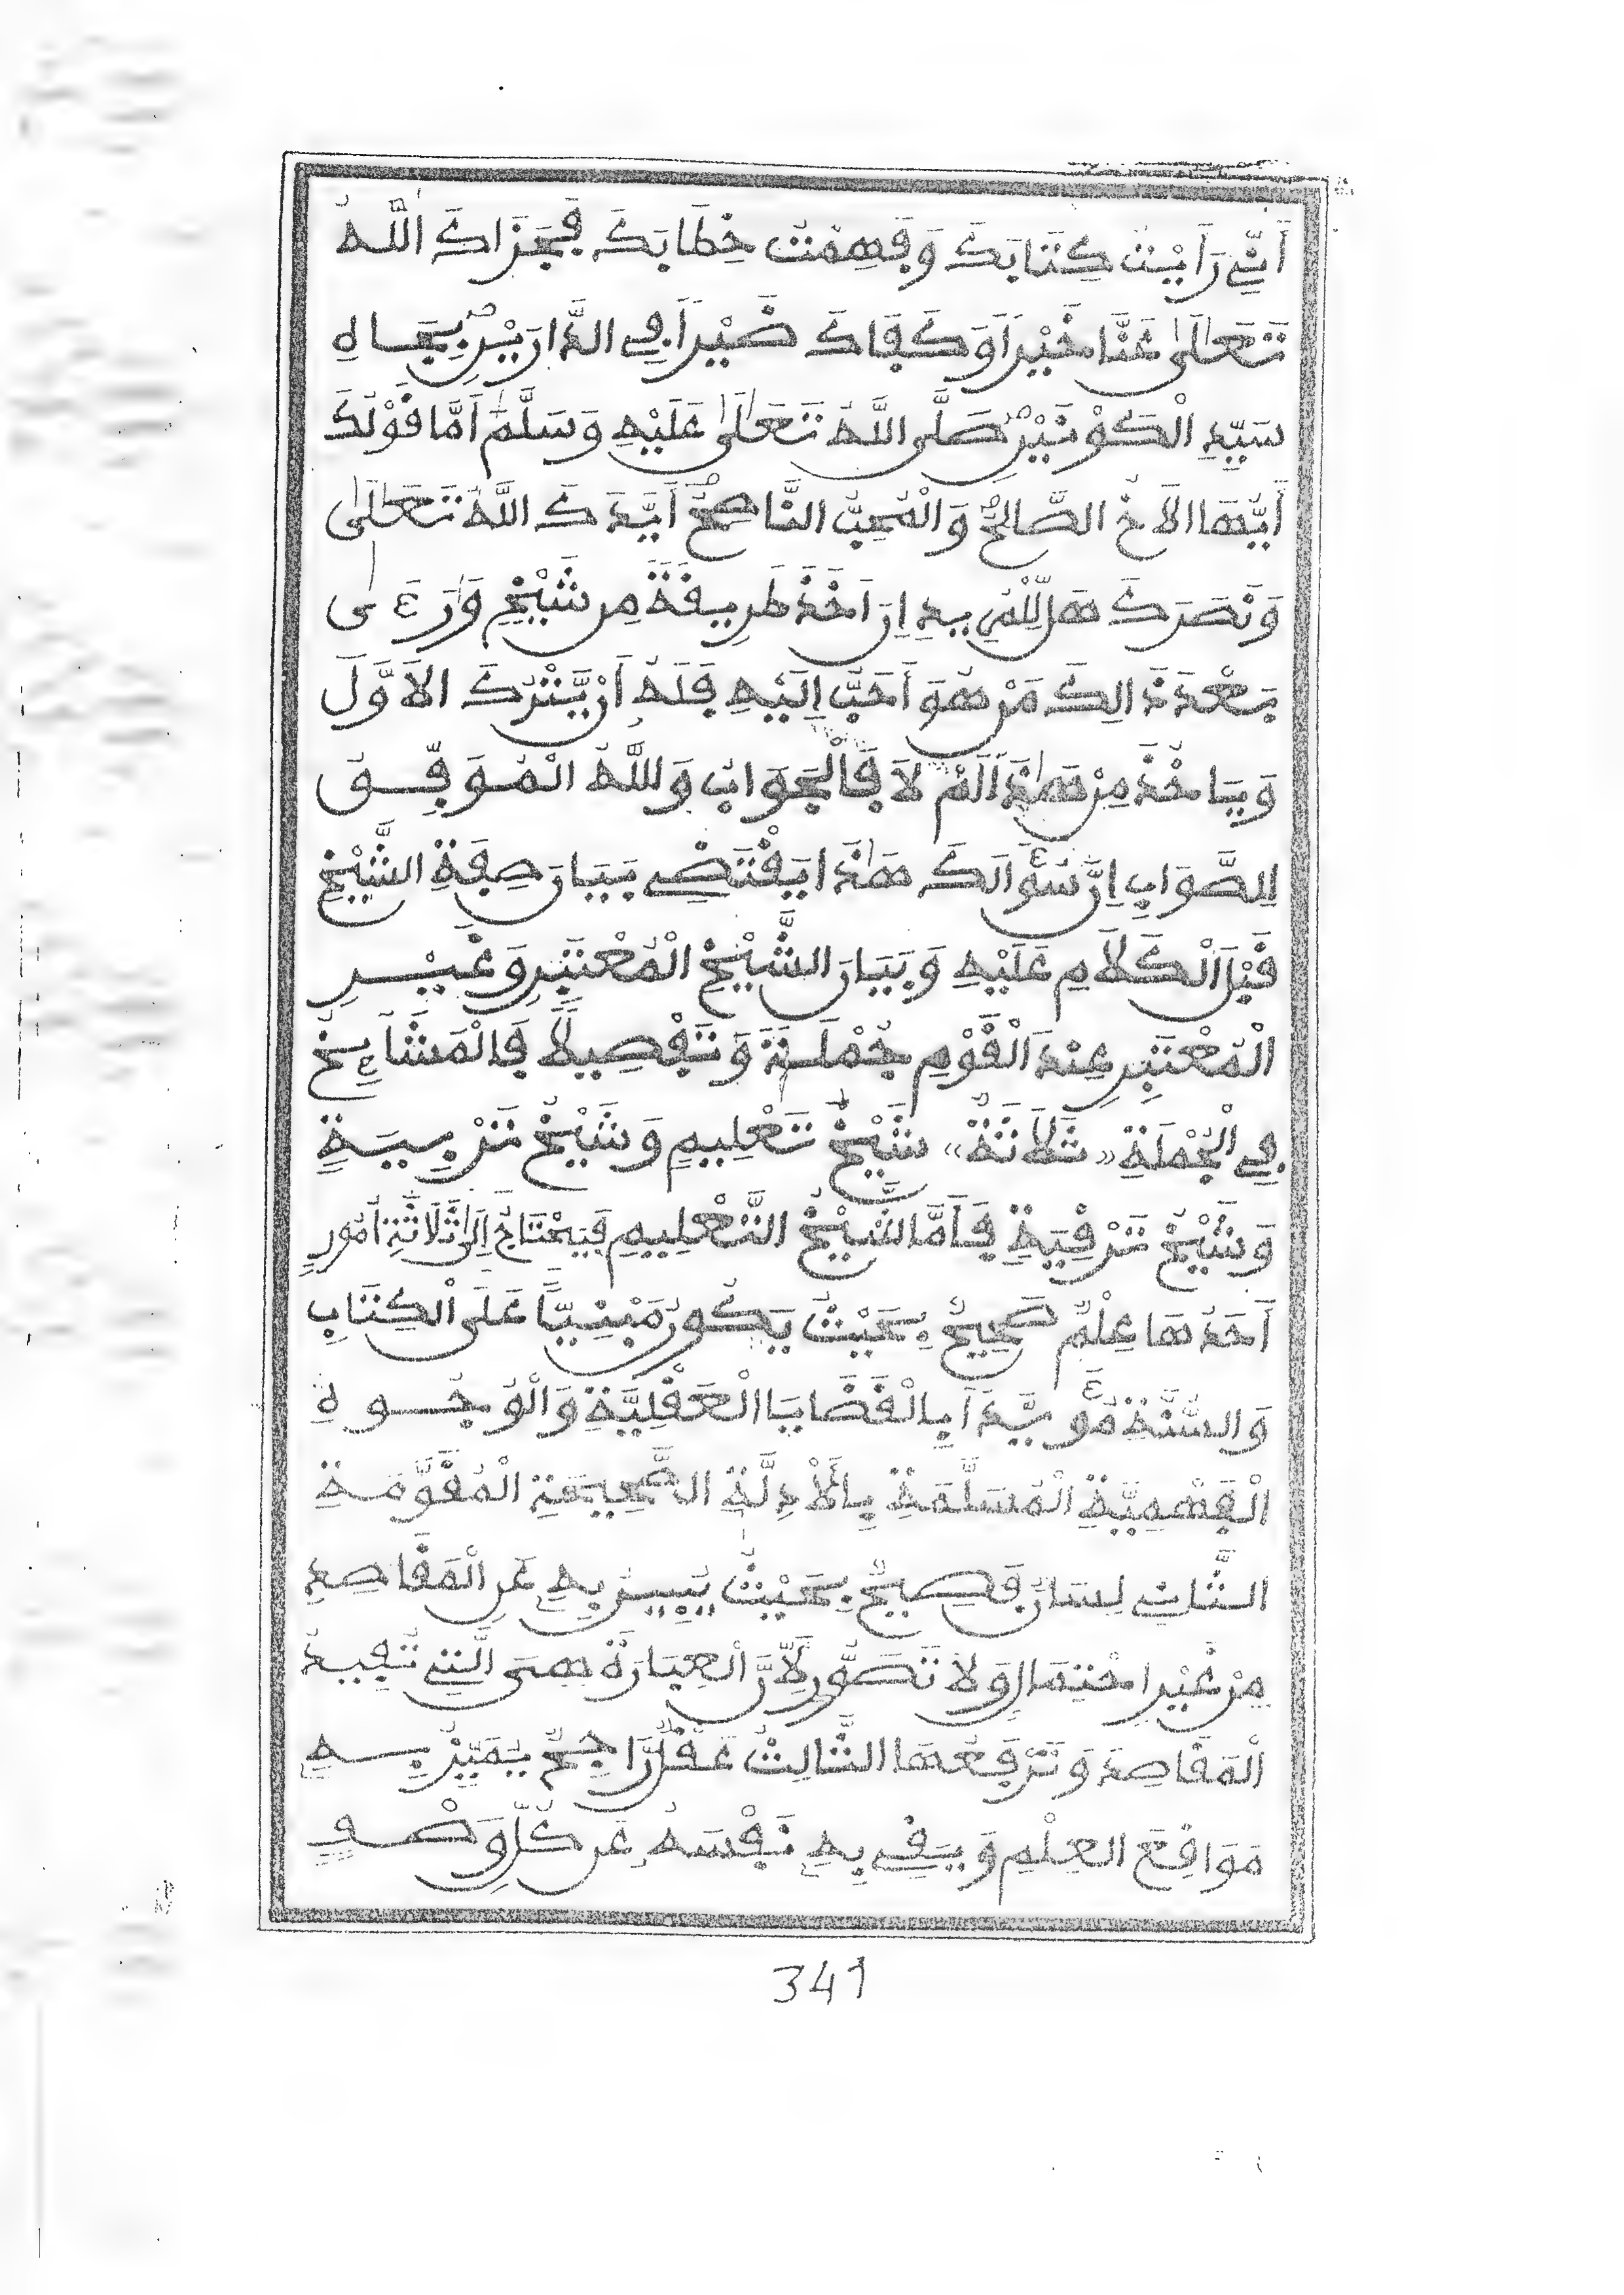 أَنِّي رَأَيْتُ كِتَابَكَ وَفَهِمْتُ خِطَابَكَ فَجَزَاكَ اللَّهُ
تَعَالَىٰ عَنَّا خَيْراً وَكَفَاكَ ضَيْراً فِي الدَّارَيْنِ بِجَاهِ
سَيِّدِ الْكَوْنَيْنِ صَلَّى اللَّهُ تَعَالَىٰ عَلَيْهِ وَسَلَّمَ أَمَّا قَوْلُكَ
أَيُّهَا الَاخُ الصَّالِحُ وَالْمُحِبُّ النَّاصِحُ أَيَّدَكَ اللَّهُ تَعَالَىٰ
وَنَصَرَكَ هَل لِّلْمُرِيدِ إِنَ اخَذَ طَرِيقَةً مِن شَيْخٍ وَرَءَى
بَعْدَ ذَالِكَ مَنْ هُوَ أَحَبُّ إِلَيْهِ فَلَهُ أَنْ يَّتْرُكَ الَاوَّلَ
وَيَاخُذَ مِنْ هَٰذَا أَمْ لَا فَالْجَوَابُ وَاللَّهُ الْمُوَفِّقُ
لِلصَّوَابِ إِنَّ سُؤَالَكَ هَٰذَا يَقْتَضِي بَيَانَ صِفَةِ الشَّيْخِ
قَبْلَ الْكَلَامِ عَلَيْهِ وَبَيَانَ الشَّيْخِ الْمُعْتَبَرِ وَغَيْرِ
الْمُعْتَبَرِ عِنْدَ الْقَوْمِ جُمْلَةً وَتَفْصِيلاً فَالْمَشَآئِخُ
فِي الْجُمْلَةِ «ثَلَاثَةٌ» شَيْخُ تَعْلِيمٍ وَشَيْخُ تَرْبِيَةٍ
وَشَيْخُ تَرْقِيَةٍ فَأَمَّا الشَّيْخُ التَّعْلِيمِ فَيَحْتَاجُ إِلَىٰ ثَلَاثَةِ أُمُورٍ
أَحَدُهَا عِلْمٌ صَحِيحٌ بِحَيْثُ يَكُونُ مَبْنِيّاً عَلَى الْكِتَابِ
وَالسُّنَّةِ مُؤَيَّداً بِالْقَضَايَا الْعَقْلِيَّةِ وَالْوُجُوهِ
الْفَهْمِيَّةِ الْمُسَلَّمَةِ بِالْأَدِلَّةِ الصَّحِيحَةِ الْمُقَوَّمَةِ
الثَّانِي لِسَانٌ فَصِيحٌ بِحَيْثُ يُبِينُ بِهِ عَنِ الْمَقَاصِدِ
مِنْ غَيْرِ احْتِمَالٍ وَلَا تَصَوُّرٍ لِأَنَّ الْعِبَارَةَ هِىَ الَّتِي تُفِيدُ
الْمَقَاصِدَ وَتَرْفَعُهَا الثَّالِثُ عَقْلٌ رَّاجِحٌ يُمَيِّزُ بِهِ
مَوَاقِعَ الْعِلْمِ وَيَقِي بِهِ نَفْسَهُ عَن كُلِّ وَصْفٍ
341